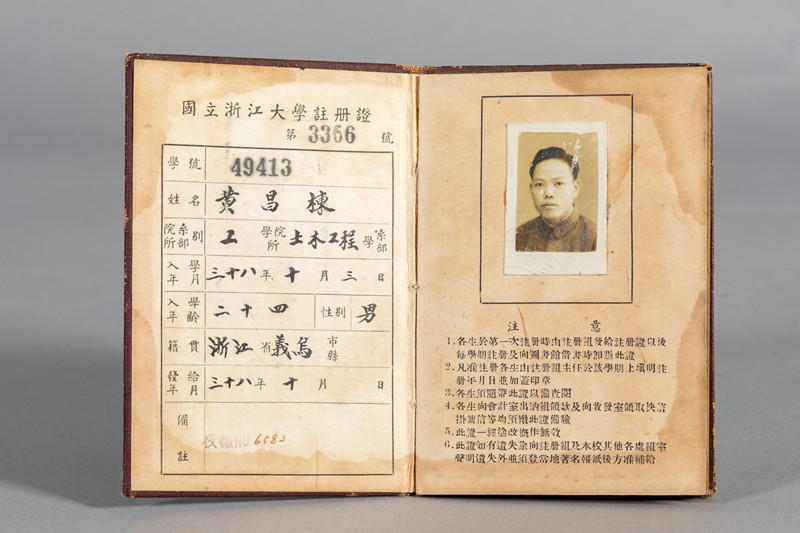 國立浙江大學註册證
第 3366 號
學號 49413
姓名 黄昌棟
院所系部別 工 學院所 土木工程 學系部
入學年月 三十八年十月三日
入學年齡 二十四 性別 男
籍貫 浙江省義烏市縣
發給年月 三十八年十月 日
備註 6582
注意
1.各生於第一次註册時由註册組發給註册證以後
每學期註册及向圖書館借書時卸憑此證
2.凡准註册各生由註册組主任於該學期上填明註
册年月日並加蓋印章
3.各生須隨帶此證以備查閱
4.各生向會計室出納組領欵及向收發室領取快信
掛號信等均須繳此證備驗
5.此證一經塗改概作無效
6.此證如有遺失除向註册組及本校其他各處組室
聲明遺失外並須登當地著名報紙後方准補給